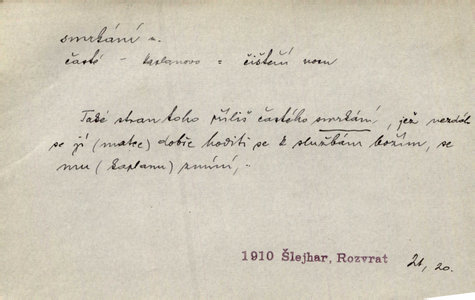 smrkání n.
časté – kaplanovo = čištění nosu
Také stran toho příliš častého smrkání, jež nezdálo
se jí (matce) dobře hoditi se k službám božím, se
mu (kaplanu) zmíní,
1910 Šlejhar, Rozvrat 21, 20.